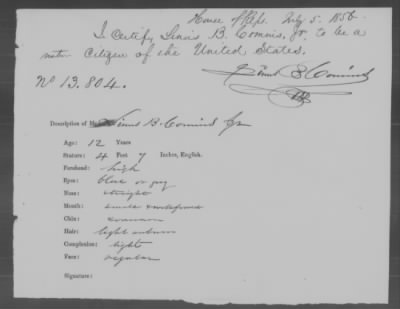 House of Reps. July 5. 1856.
I Certify Linus B. Comins, Jr. to be a
native Citizen of the United States.
Linus B Comins
No 13.804.
Description of Linus B Comins Jr
Age: 12 Years
Stature: 4 Feet 7 Inches, English.
Forehead: high
Eyes: blue or gray
Nose: straight
Mouth: small
Chin: common
Hair: light auburn
Complexion: light
Face: regular
Signature: